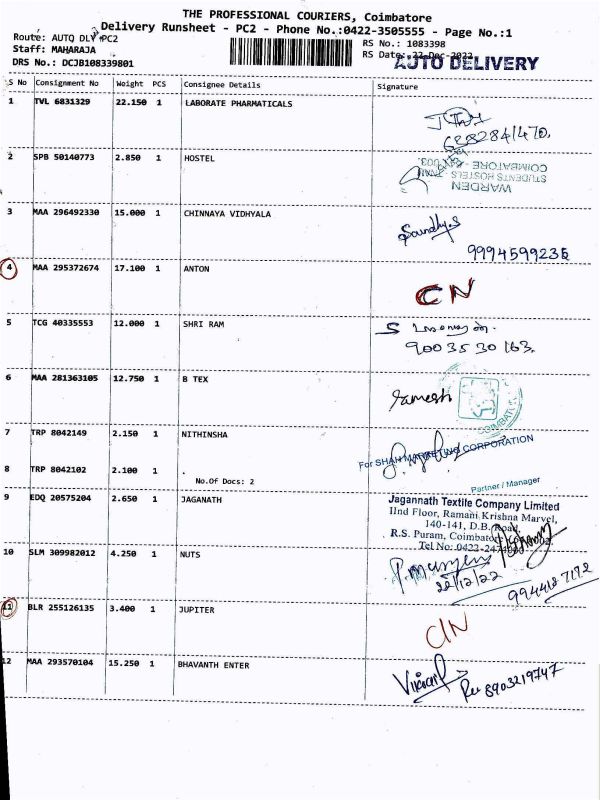 THE PROFESSIONAL COURIERS, Coimbatore
Delivery Runsheet - PC2 - Phone No.:0422-3505555 - Page No.:1
Route: AUTO DLY PC2
RS No.: 1083398
Staff: MAHARAJA
RS Date: 22-Dec-2022
DRS No.: DCJB108339801
AUTO DELIVERY
S No Consignment No Weight PCS Consignee Details Signature
1 TVL 6831329 22.150 1 LABORATE PHARMATICALS
2 SPB 50140773 2.850 1 HOSTEL
WARDEN
STUDENTS HOSTELS
COIMBATORE
3 MAA 296492330 15.000 1 CHINNAYA VIDHYALA
9994599235
4 MAA 295372674 17.100 1 ANTON
CN
5 TCG 40335553 12.000 1 SHRI RAM
90035 30163
6 MAA 281363105 12.750 1 B TEX
Ramesh
7 TRP 8042149 2.150 1 NITHINSHA
For SHAH MARKETING CORPORATION
8 TRP 8042102 2.100 1 .
No.Of Docs: 2
Partner / Manager
9 EDQ 20575204 2.650 1 JAGANATH
Jagannath Textile Company Limited
IInd Floor, Ramani Krishna Marvel,
140-141, D.B. Road,
R.S. Puram, Coimbatore
Tel No: 0422-
10 SLM 309982012 4.250 1 NUTS
22/12/22
11 BLR 255126135 3.400 1 JUPITER
C/N
12 MAA 293570104 15.250 1 BHAVANTH ENTER
8903219747